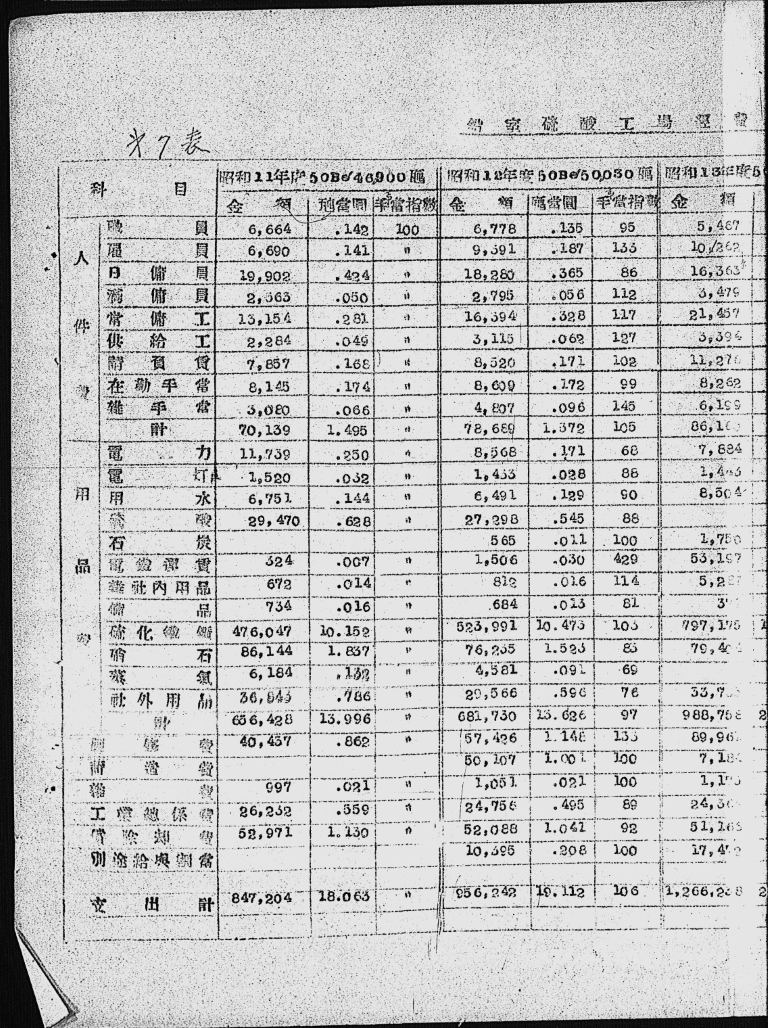 鉛室硫酸工場經費
才7表
科目 昭和11年度50Bé/46,900瓲 昭和12年度50Bé/50,030瓲 昭和13年度5
金額 瓲當圓 手當指數 金額 瓲當圓 手當指數 金額
人件費
職員 6,664 .142 100 6,778 .135 95 5,467
雇員 6,690 .141 〃 9,391 .187 133 10,262
日傭員 19,902 .424 〃 18,280 .365 86 16,363
傭員 2,363 .050 〃 2,795 .056 112 3,479
常傭工 13,154 .281 〃 16,394 .328 117 21,457
供給工 2,284 .049 〃 3,115 .062 127 3,394
請負賃 7,857 .168 〃 8,520 .171 102 11,276
在勤手當 8,145 .174 〃 8,609 .172 99 8,262
雜手當 3,080 .066 〃 4,807 .096 145 6,199
計 70,139 1.495 〃 78,689 1.572 105 86,16
用品費
電力 11,739 .250 〃 8,568 .171 68 7,884
電灯 1,520 .032 〃 1,433 .028 88 1,4
用水 6,751 .144 〃 6,491 .129 90 8,504
酸 29,470 .628 〃 27,298 .545 88
石炭 565 .011 100 1,750
324 .007 〃 1,506 .030 429 53,197
社內用品 672 .014 〃 812 .016 114 5,2
備品 734 .016 〃 684 .013 81 3
硫化鐵鑛 476,047 10.152 〃 523,991 10.473 103 797,175 1
硝石 86,144 1.837 〃 76,235 1.523 83 79,40
蒸氣 6,184 .132 〃 4,581 .091 69
社外用品 36,843 .786 〃 29,566 .596 76 33,7
計 656,428 13.996 〃 681,730 13.626 97 988,758 2
費 40,437 .862 〃 57,426 1.148 133 89,96
費 50,107 1.001 100 7,18
雜費 997 .021 〃 1,051 .021 100 1,1
工業總係費 26,232 .559 〃 24,756 .495 89 24,3
償除却費 52,971 1.130 〃 52,088 1.041 92 51,16
別途給與割當 10,395 .208 100 17,4
支出計 847,204 18.063 〃 956,242 19.112 106 1,266,2 8 2